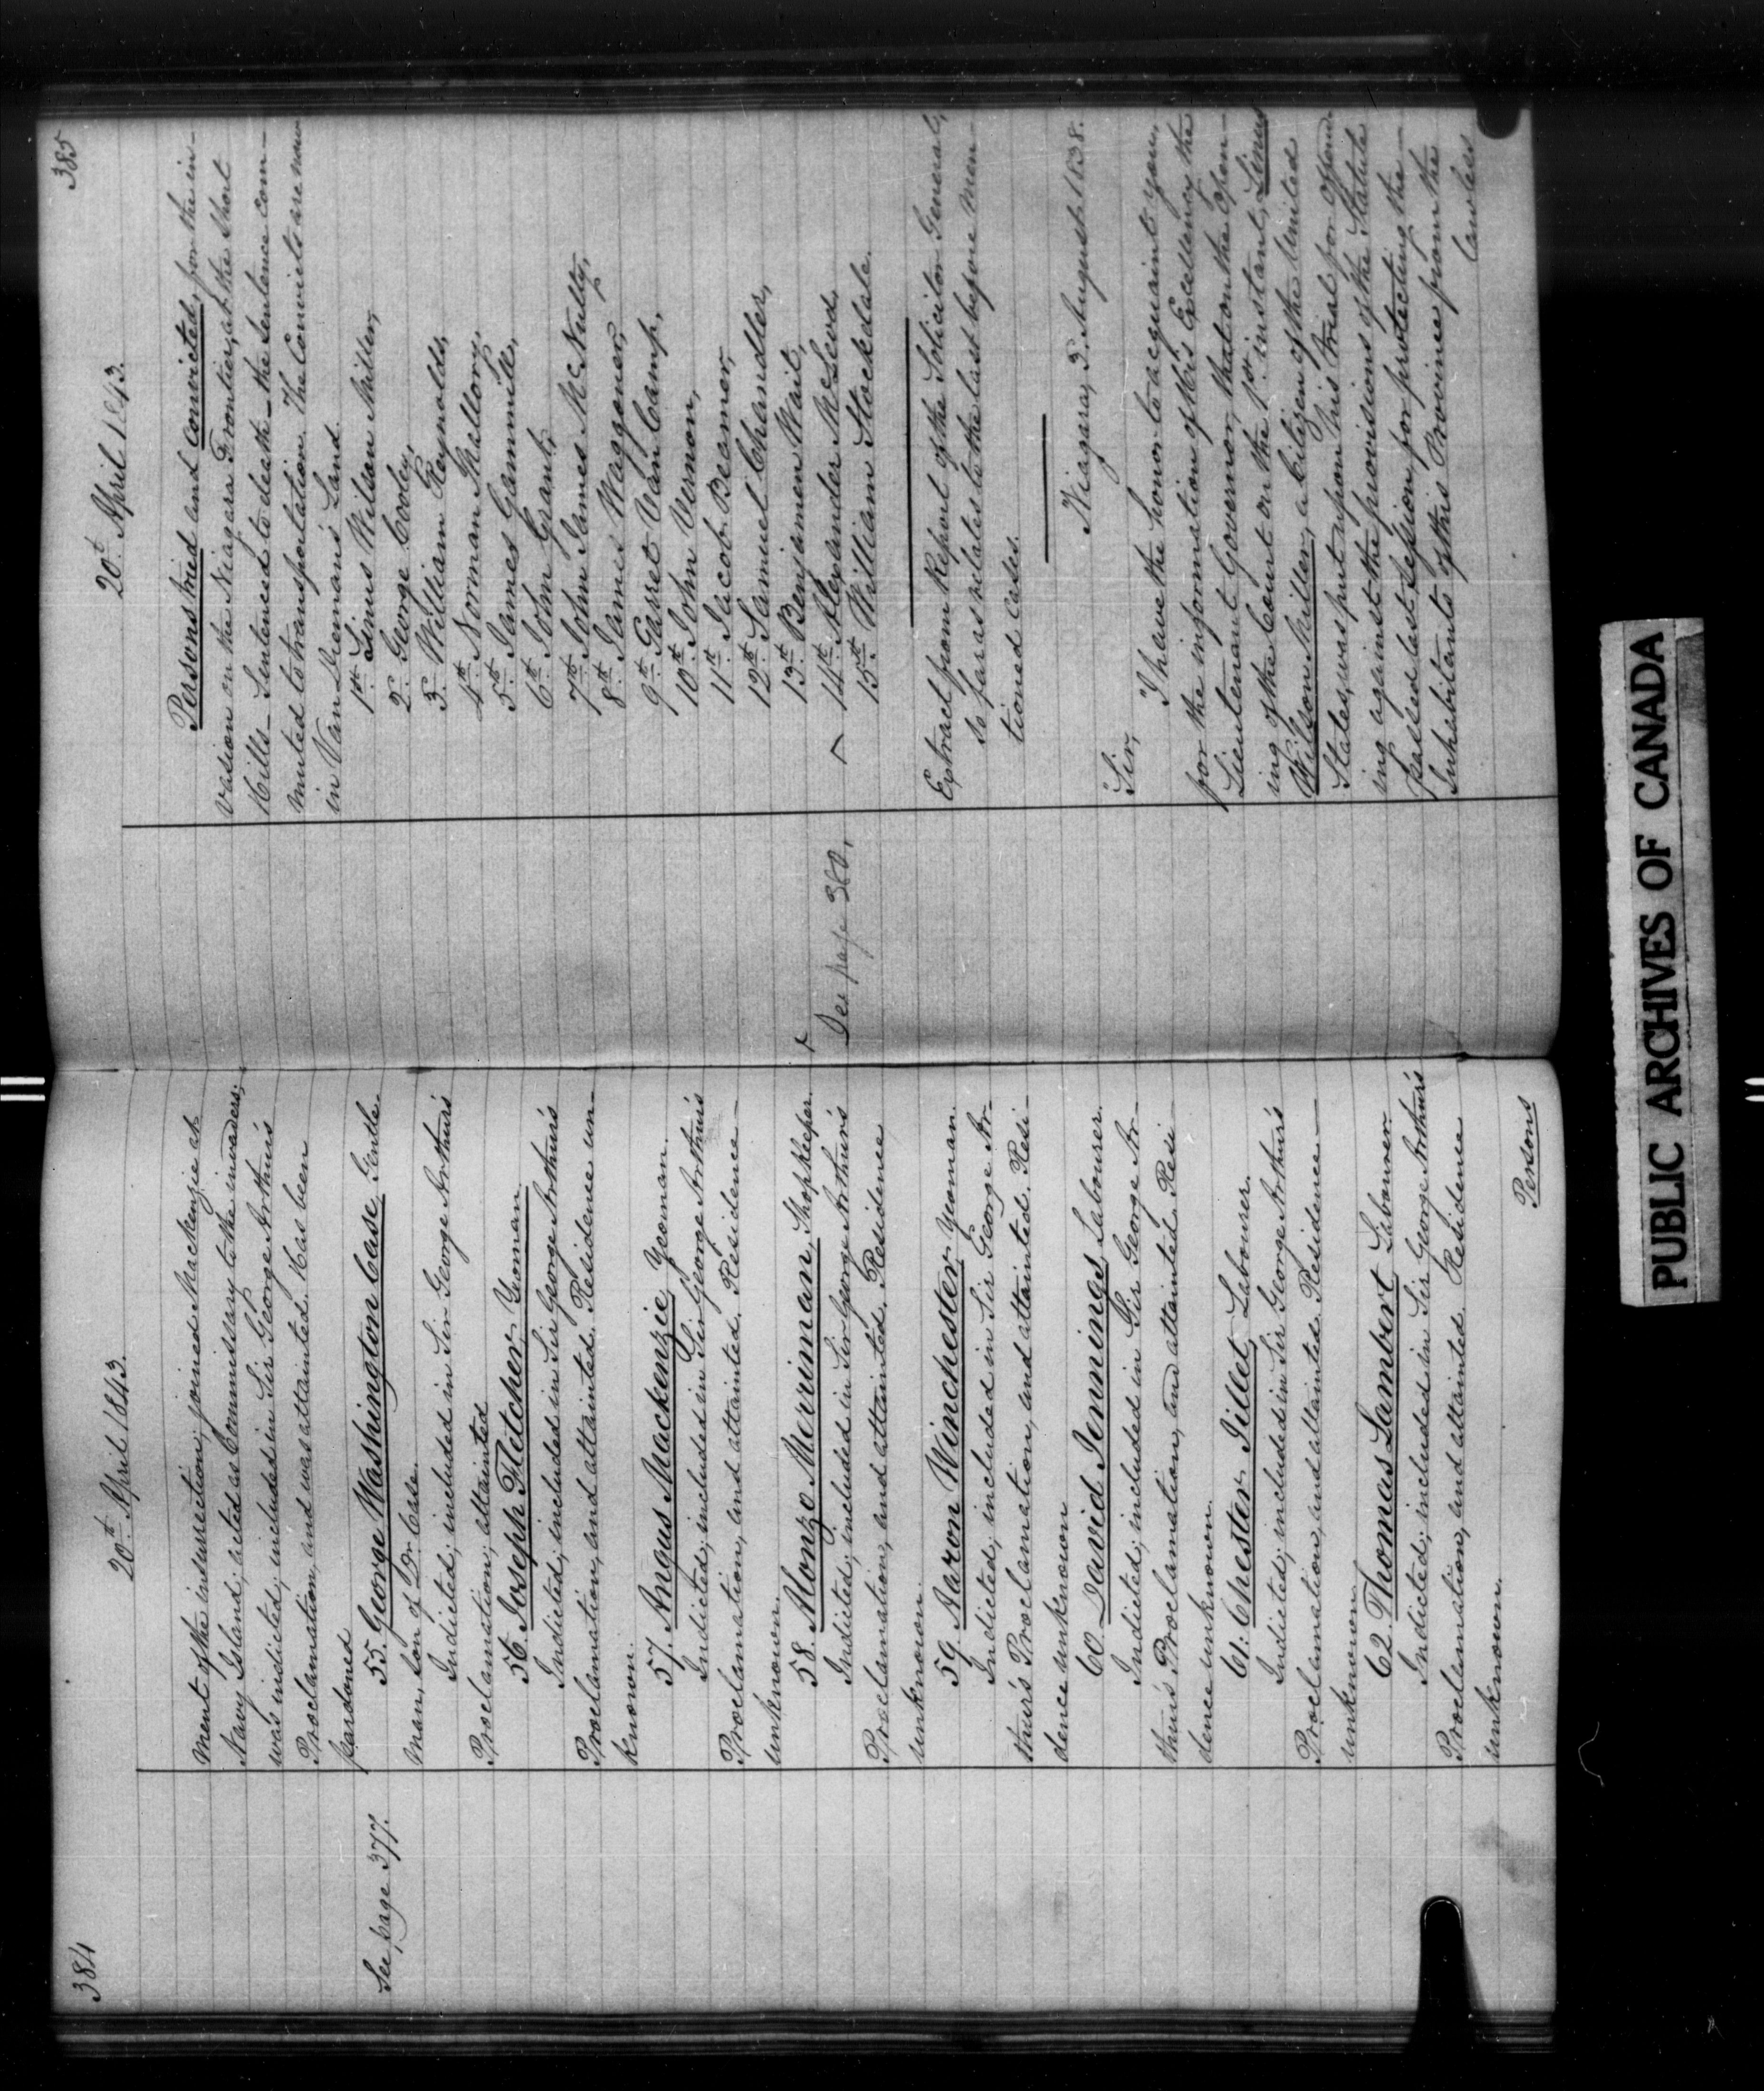 384
20th April 1843.
ment of the insurrection; joined Mackenzie at
Navy Island; acted as Commissary to the invaders;
was indicted; included in Sir George Arthur's
Proclamation, and was attainted. Has been
pardoned
See page 377.
55. George Washington Case, Gentle-
man, Son of Dr. Case.
Indicted; included in Sir George Arthur's
Proclamation; attainted
56. Joseph Fletcher, Yeoman.
Indicted; included in Sir George Arthur's
Proclamation, and attainted. Residence un-
known.
57. Angus Mackenzie, Yeoman.
Indicted; included in Sir George Arthur's
Proclamation, and attainted. Residence
unknown.
58. Alonzo Merriman, Shopkeeper
Indicted; included in Sir George Arthur's
Proclamation, and attainted. Residence
unknown.
59. Aaron Winchester, Yeoman.
Indicted; included in Sir George Ar-
thur's Proclamation, and attainted. Resi-
dence unknown
60. David Jennings, Labourer.
Indicted; included in Sir George Ar-
thur's Proclamation, and attainted. Resi-
dence unknown.
61. Chester Jillet, Labourer.
Indicted; included in Sir George Arthur's
Proclamation, and attainted. Residence
unknown.
62. Thomas Lambert, Labourer
Indicted; included in Sir George Arthur's
Proclamation, and attainted. Residence
unknown.
Persons
385
20t. April 1843.
Persons tried and convicted, for the in-
vasion on the Niagara Frontier, at the Short
Hills - Sentenced to death - the Sentence com-
muted to transportation. The Convicts are now
in Van Dieman's Land.
1st. Linus Wilson Miller,
2. George Cooley,
3. William Reynolds,
4th. Norman Mallory,
5th. James Gammill,
6th. John Grant,
7th. John James McNulty,
8th. James Waggoner,
9th. Garret Van Camp,
10th. John Vernon,
11th. Jacob Beamer,
12th. Samuel Chandler,
13th. Benjamen Wait,
x See page 380,
x 14th. Alexander McLeod,
15th. William Stockdale.
Extract from Report of the Solicitor General,
so far as relates to the last before men-
tioned cases.
Niagara, 3. August 1838.
"Sir,
"I have the honor to acquaint you,
for the information of His Excellency the
Lieutenant Governor, that on the open-
ing of the Court on the 1st. instant, Linus
Wilson Miller, a Citizen of the United
States, was put upon his trial for offend-
ing against the provisions of the Statute
passed last Session, for protecting the
Inhabitants of this Province from the
lawless
PUBLIC ARCHIVES OF CANADA